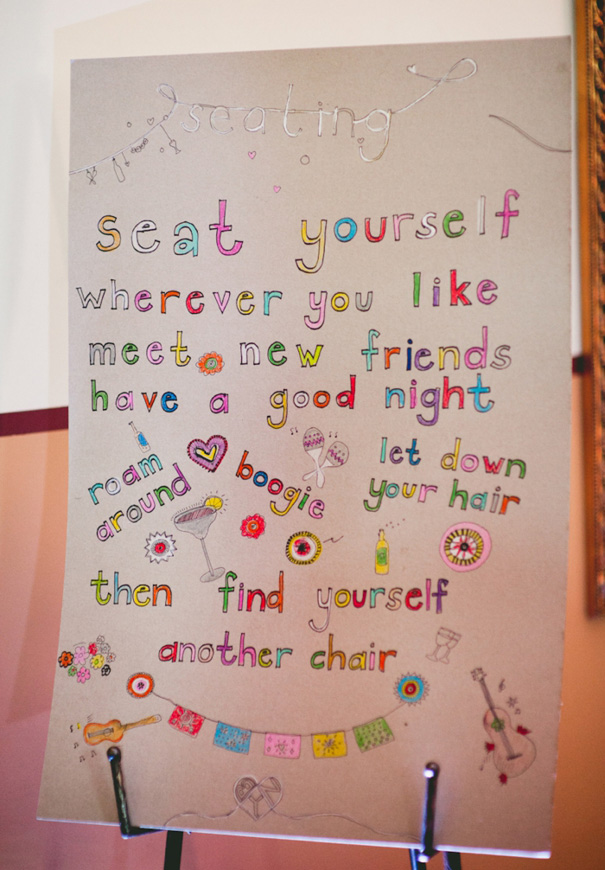 seating
seat yourself
wherever you like
meet new friends
have a good night
roam around
boogie
let down
your hair
then find yourself
another chair